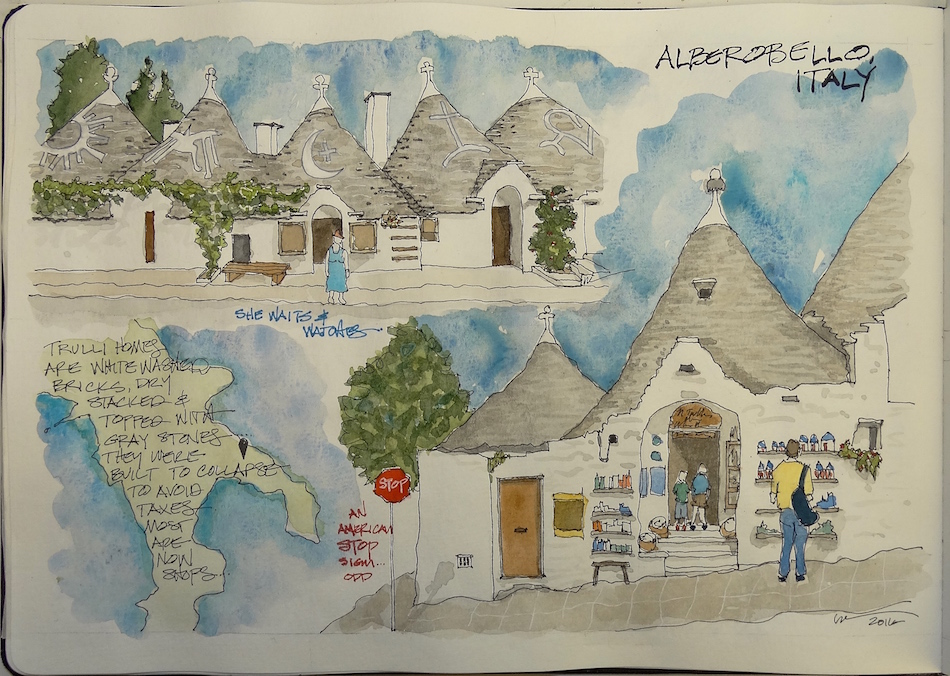 ALBEROBELLO,
ITALY
SHE WAITS &
WATCHES
TRULLI HOMES
ARE WHITE WASHED
BRICKS, DRY
STACKED &
TOPPED WITH
GRAY STONES
THEY WERE
BUILT TO COLLAPSE
TO AVOID
TAXES
MOST
ARE
NOW
SHOPS..
STOP
AN
AMERICAN
STOP
SIGN...
ODD
2016